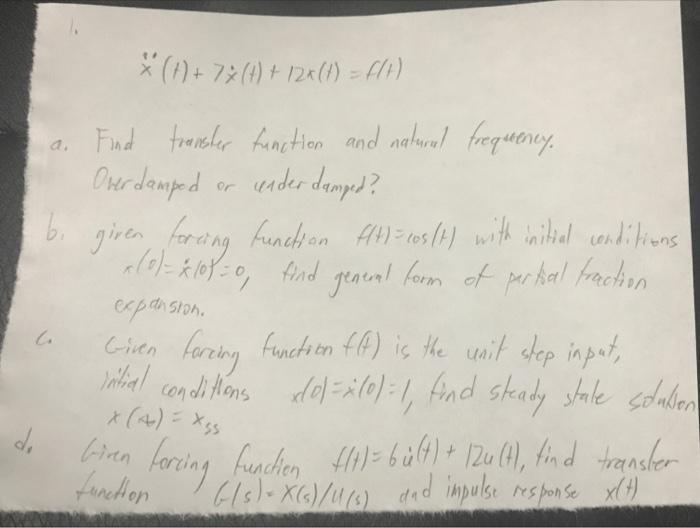 1.
ẍ(t) + 7ẋ(t) + 12x(t) = f(t)
a. Find transfer function and natural frequency.
Overdamped or underdamped?
b. given forcing function f(t)=cos(t) with initial conditions
x(0)=ẋ(0)=0, find general form of partial fraction
expansion.
c. Given forcing function f(t) is the unit step input,
initial conditions x(0)=ẋ(0)=1, find steady state solution
x(∞) = xss
d. Given forcing function f(t)=6u̇(t) + 12u(t), find transfer
function G(s)=X(s)/U(s) and impulse response x(t)